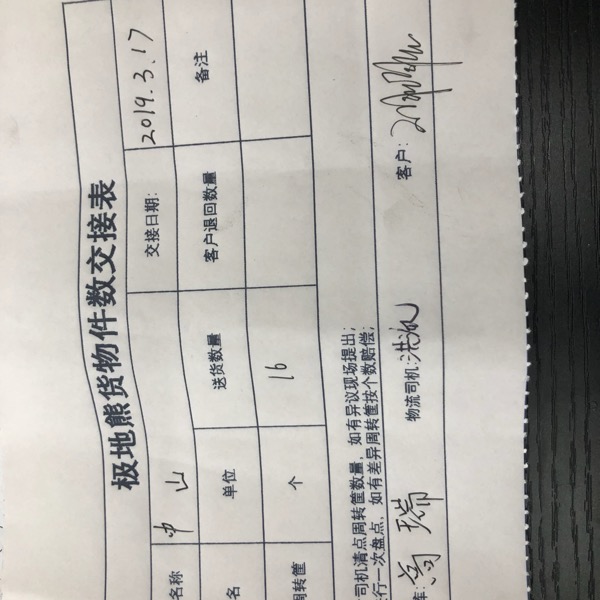 极地熊货物件数交接表
名称 中山 交接日期: 2019.3.17
名 单位 送货数量 客户退回数量 备注
周转筐 个 16
司机清点周转筐数量，如有异议现场提出；
行一次盘点，如有差异周转筐按个数赔偿；
库: 高瑞 物流司机: 客户: